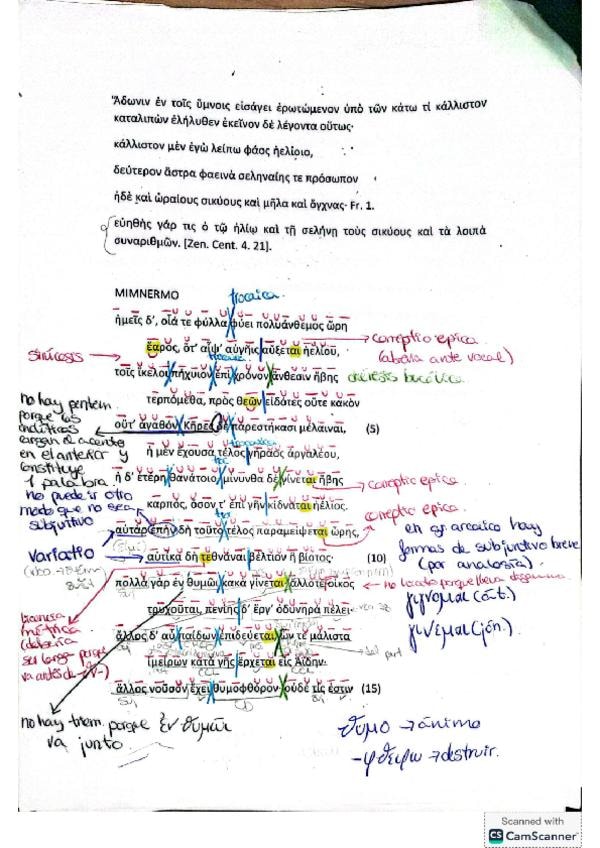 Ἄδωνιν ἐν τοῖς ὕμνοις εἰσάγει ἐρωτώμενον ὑπὸ τῶν κάτω τί κάλλιστον
καταλιπὼν ἐλήλυθεν ἐκεῖνον δὲ λέγοντα οὕτως·
κάλλιστον μὲν ἐγὼ λείπω φάος ἠελίοιο,
δεύτερον ἄστρα φαεινὰ σεληναίης τε πρόσωπον
ἠδὲ καὶ ὡραίους σικύους καὶ μῆλα καὶ ὄγχνας· Fr. 1.
εὐηθὴς γάρ τις ὁ τῷ ἡλίῳ καὶ τῇ σελήνῃ τοὺς σικύους καὶ τὰ λοιπὰ
συναριθμῶν. [Zen. Cent. 4. 21].
MIMNERMO
trocaica
ἡμεῖς δ', οἷά τε φύλλα φύει πολυάνθεμος ὥρη
ἔαρος, ὅτ' αἶψ' αὐγῆις αὔξεται ἠελίου,
correptio epica
(abrevia ante vocal)
sinícesis
τοῖς ἴκελοι πήχυιον ἐπὶ χρόνον ἄνθεσιν ἥβης
diéresis bucólica
τερπόμεθα, πρὸς θεῶν εἰδότες οὔτε κακὸν
οὔτ' ἀγαθόν· Κῆρες δὲ παρεστήκασι μέλαιναι, (5)
no hay pentem
porque las
enclíticas
cargan el acento
en el anterior y
constituye
1 palabra.
ἡ μὲν ἔχουσα τέλος γήραος ἀργαλέου,
ἡ δ' ἑτέρη θανάτοιο· μίνυνθα δὲ γίνεται ἥβης
correptio epica
καρπός, ὅσον τ' ἐπὶ γῆν κίδναται ἠέλιος.
correptio epica
no puede ir otro
modo que no sea
subjuntivo
αὐτὰρ ἐπὴν δὴ τοῦτο τέλος παραμείψεται ὥρης,
en gr. arcaico hay
formas de subjuntivo breve
(por analogía)
variatio
αὐτίκα δὴ τεθνάναι βέλτιον ἢ βίοτος· (10)
πολλὰ γὰρ ἐν θυμῶι κακὰ γίνεται· ἄλλοτε οἶκος
γίγνομαι (át.)
τρυχοῦται, πενίης δ' ἔργ' ὀδυνηρὰ πέλει·
γίνεμαι (jón.)
métrica
ἄλλος δ' αὖ παίδων ἐπιδεύεται, ὧν τε μάλιστα
ἱμείρων κατὰ γῆς ἔρχεται εἰς Ἀΐδην·
ἄλλος νοῦσον ἔχει θυμοφθόρον· οὐδέ τίς ἐστιν (15)
no hay triem. porque ἐν θυμῶι
va junto
θυμο → ánimo
-φθείρω → destruir.
Scanned with
CS CamScanner